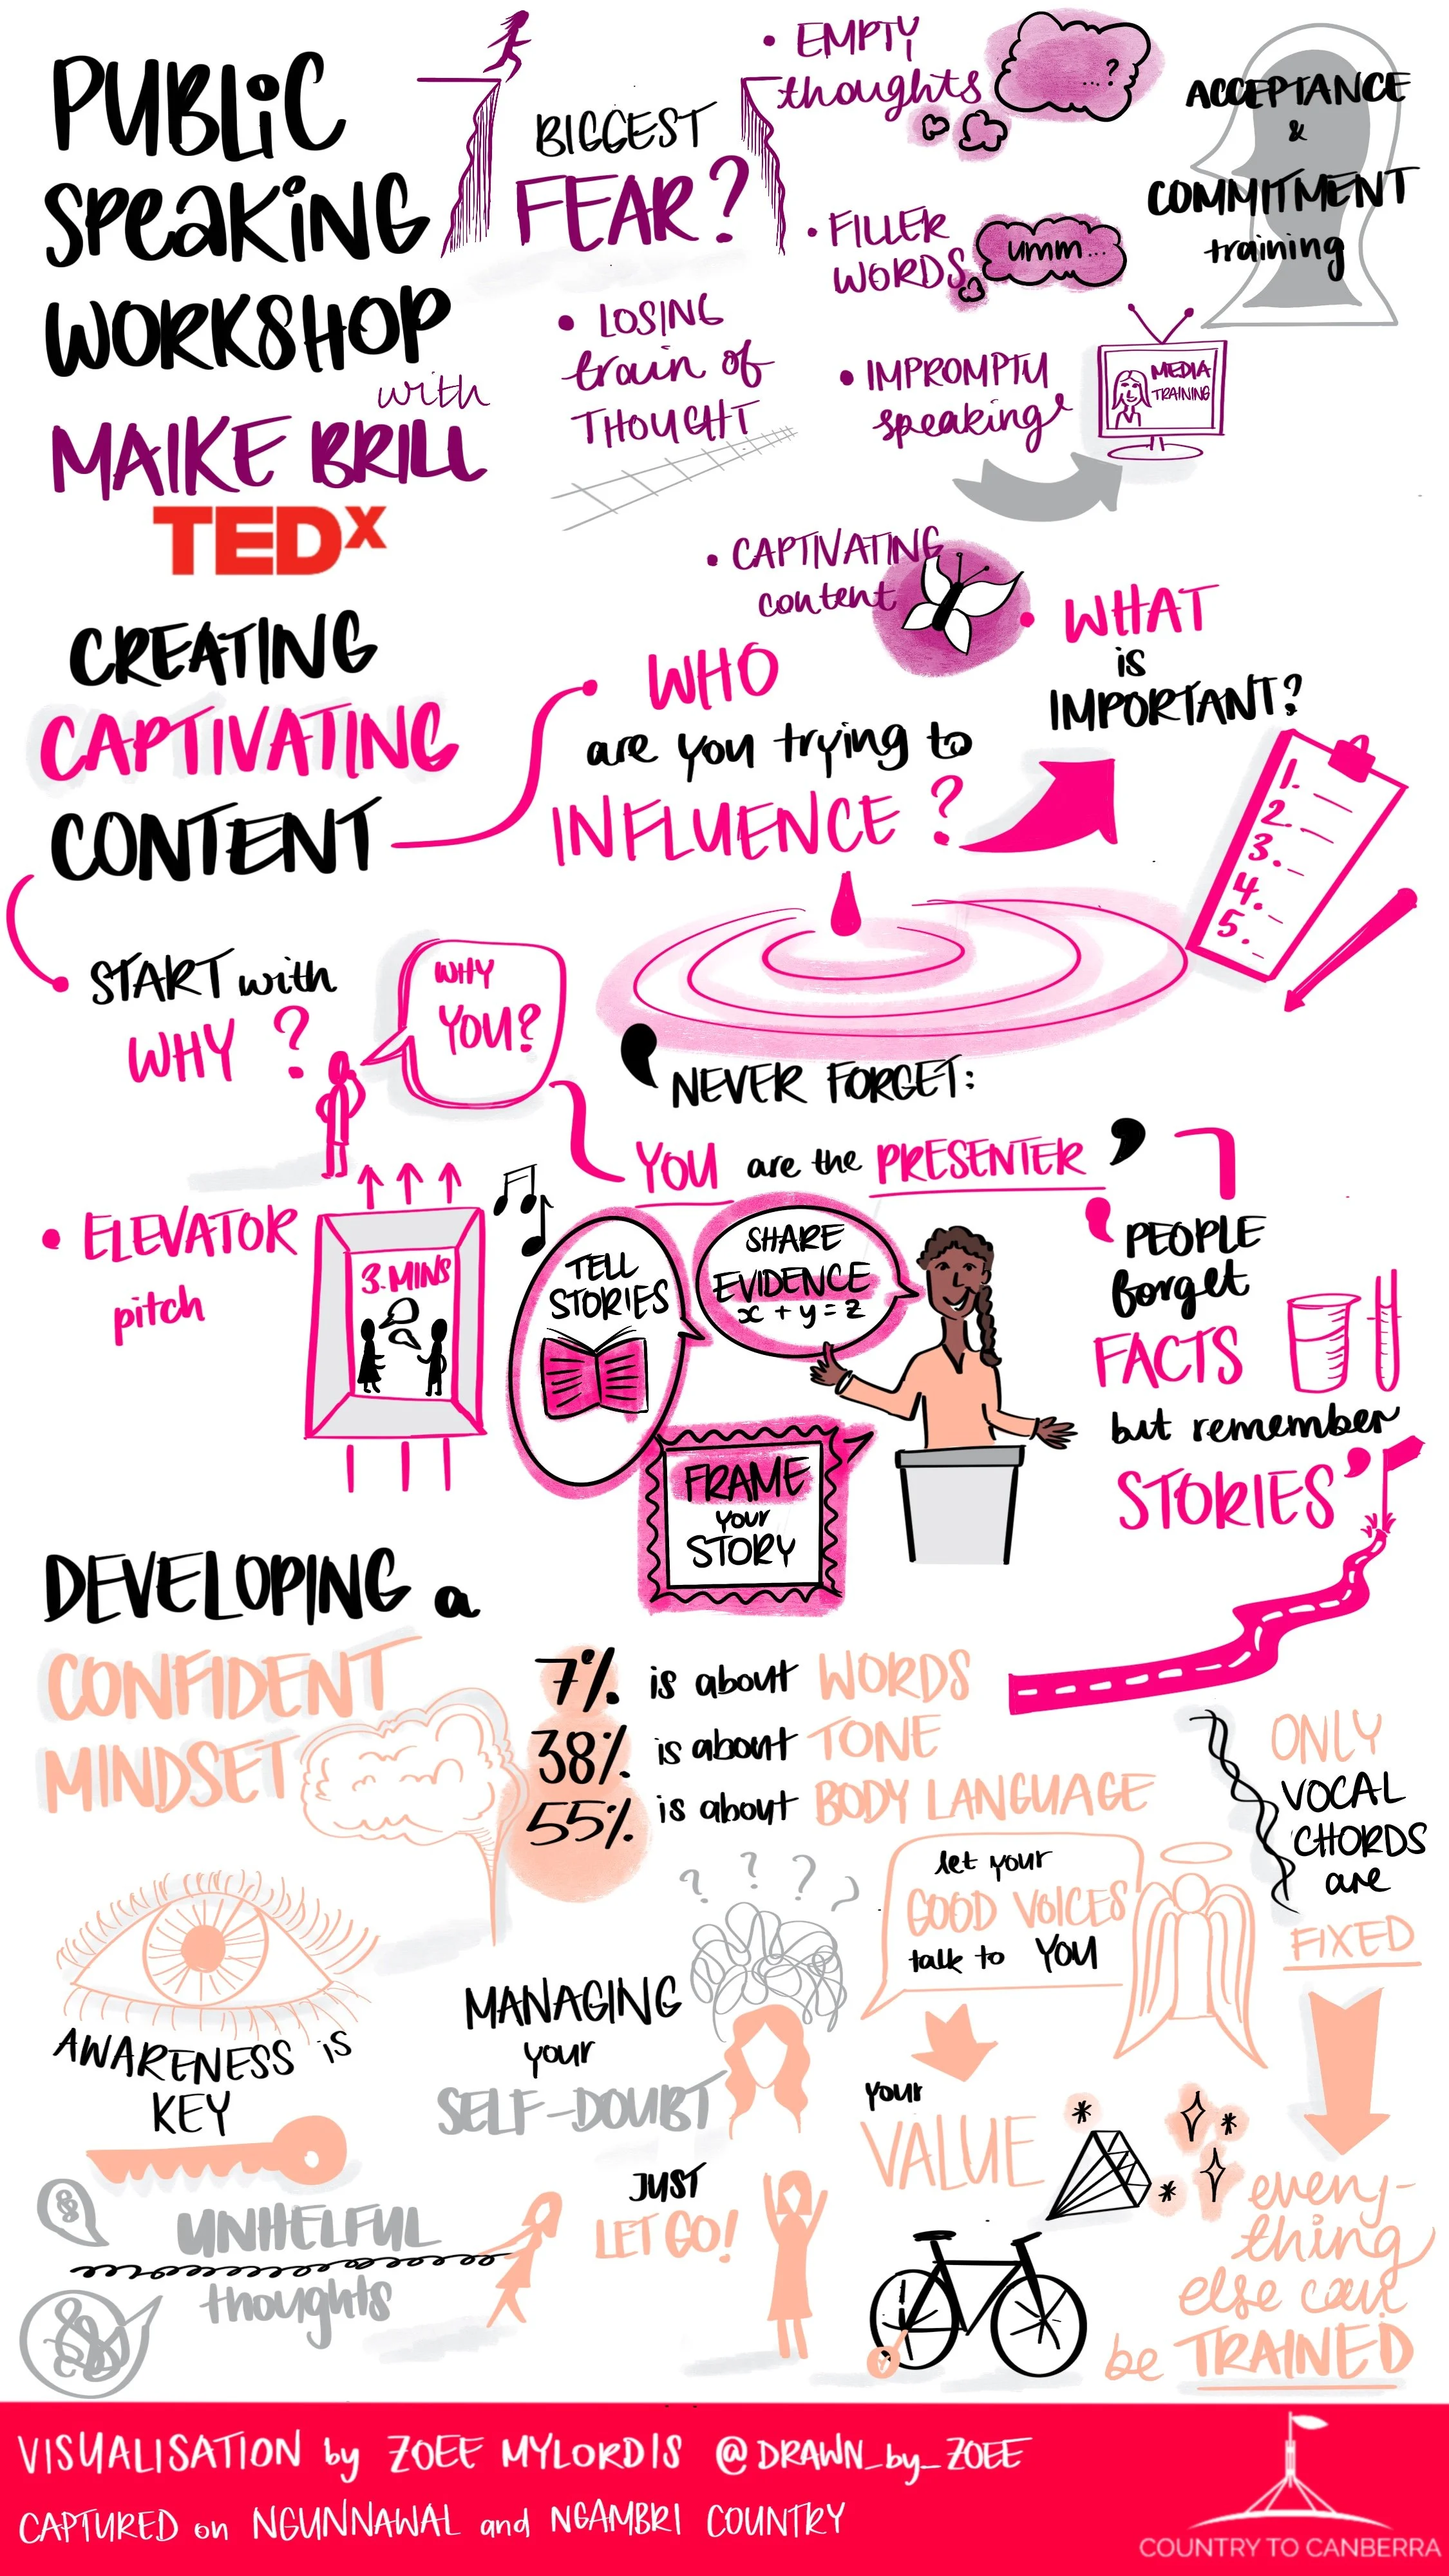 PUBLIC
SPEAKING
WORKSHOP
with
MAIKE BRILL
TEDx
BIGGEST
FEAR?
• EMPTY
thoughts
...?
• FILLER
WORDS
umm...
• LOSING
train of
THOUGHT
• IMPROMPTU
speaking
MEDIA
TRAINING
ACCEPTANCE
&
COMMITMENT
training
• CAPTIVATING
content
CREATING
CAPTIVATING
CONTENT
WHO
are you trying to
INFLUENCE?
WHAT
is
IMPORTANT?
1.
2.
3.
4.
5.
START with
WHY?
WHY
YOU?
' NEVER FORGET:
YOU are the PRESENTER '
• ELEVATOR
pitch
3 MINS
TELL
STORIES
SHARE
EVIDENCE
x + y = z
FRAME
your
STORY
' PEOPLE
forget
FACTS
but remember
STORIES '
DEVELOPING a
CONFIDENT
MINDSET
7% is about WORDS
38% is about TONE
55% is about BODY LANGUAGE
ONLY
VOCAL
CHORDS
are
FIXED
every-
thing
else can
be TRAINED
let your
GOOD VOICES
talk to YOU
your
VALUE
? ? ? ?
MANAGING
your
SELF-DOUBT
AWARENESS is
KEY
UNHELFUL
thoughts
JUST
LET GO!
VISUALISATION by ZOEE MYLORDIS @DRAWN_by_ZOEE
CAPTURED on NGUNNAWAL and NGAMBRI COUNTRY
COUNTRY TO CANBERRA